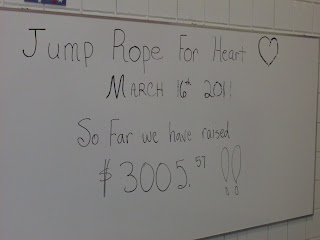 Jump Rope For Heart ♡
March 16th 2011
So Far we have raised
$3005.57 !!